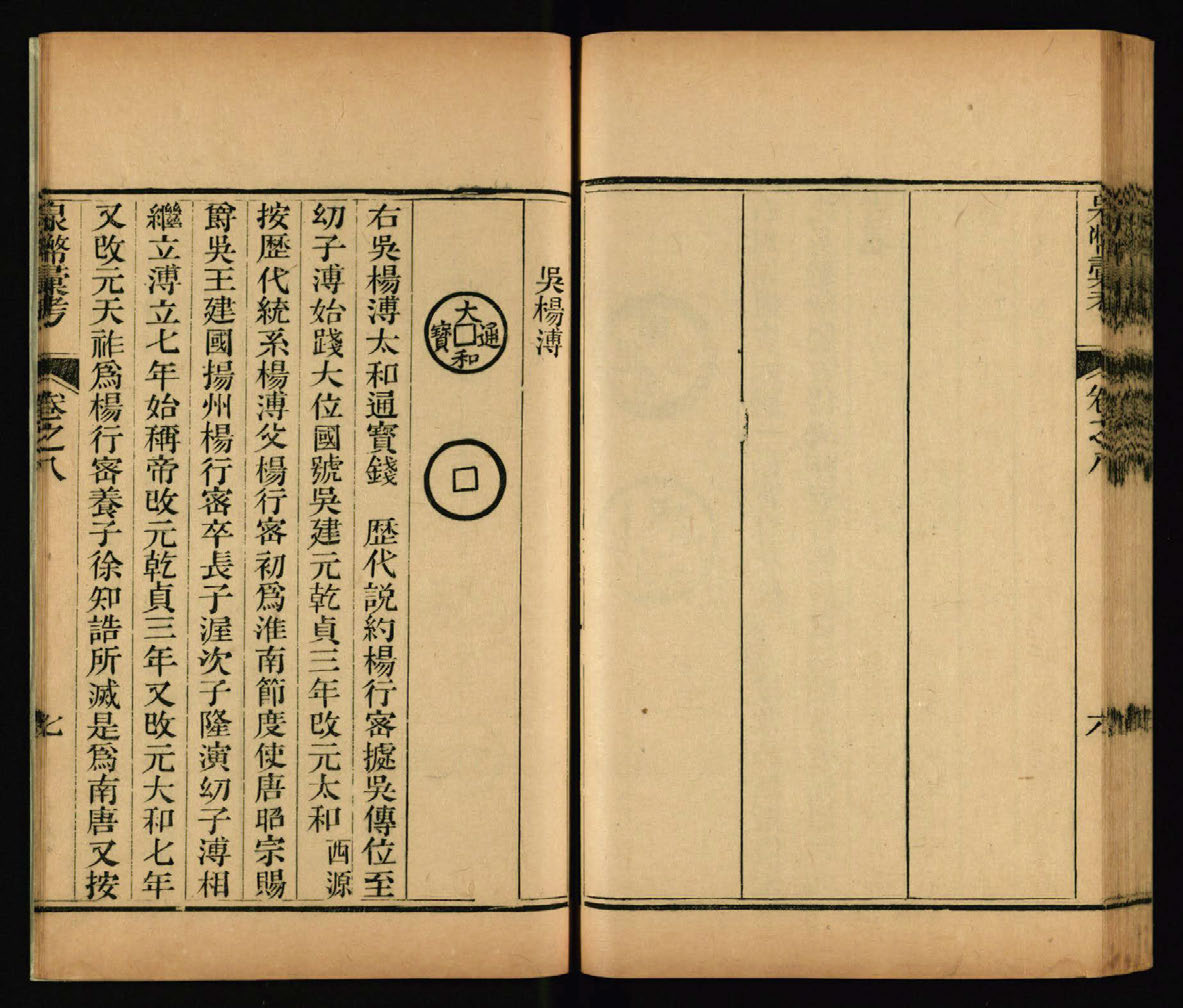 泉幣彙考
卷之八
六
吳楊溥
大和通寶
右吳楊溥太和通寶錢　歷代説約楊行密據吳傳位至
幼子溥始踐大位國號吳建元乾貞三年改元太和　西源
按歷代統系楊溥父楊行密初爲淮南節度使唐昭宗賜
爵吳王建國揚州楊行密卒長子渥次子隆演幼子溥相
繼立溥立七年始稱帝改元乾貞三年又改元大和七年
又改元天祚爲楊行密養子徐知誥所滅是爲南唐又按
泉幣彙考
卷之八
七